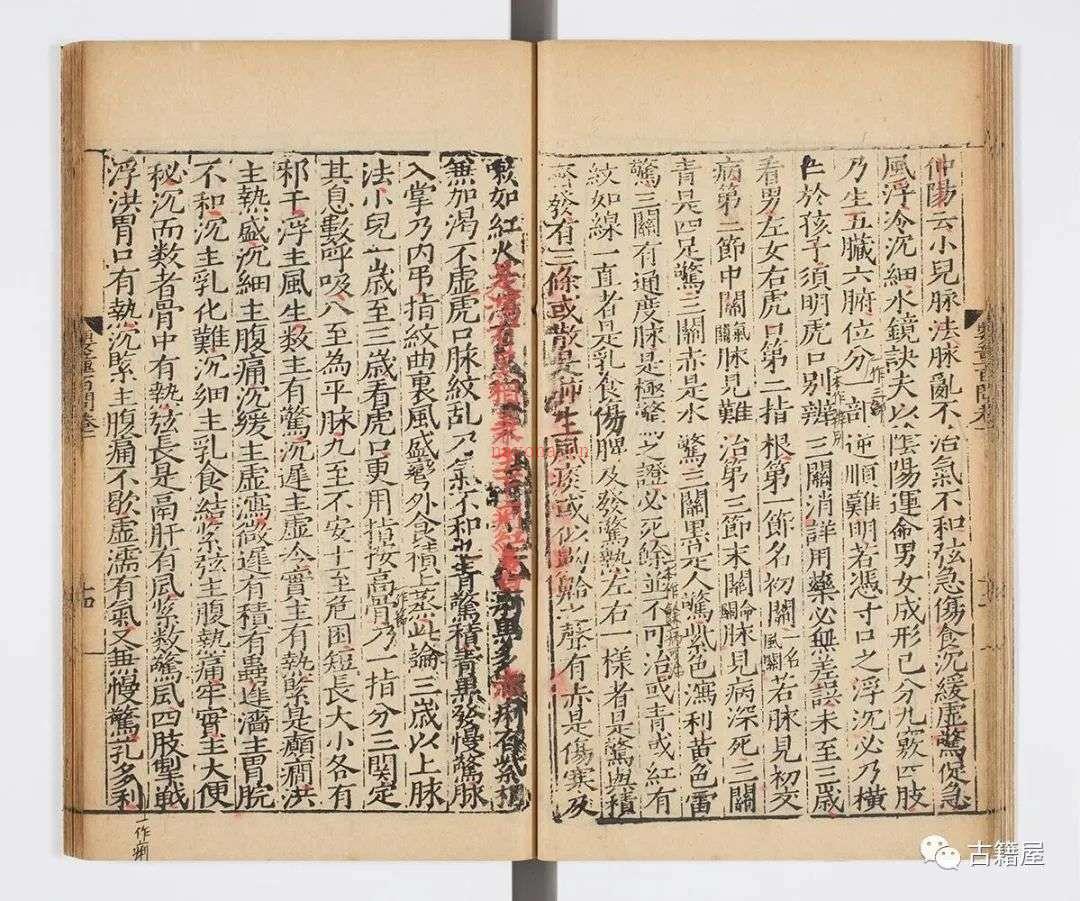 仲陽云小兒脉法脉亂不治氣不和弦急傷食沉緩虛驚促急
風浮冷沉細水鏡訣夫以陰陽運命男女成形已分九竅四肢
乃生五臟六腑位分一部逆順難明若憑寸口之浮沉必乃橫
亡於孩子須明虎口別辨三關消詳用藥必無差誤未至三歲
看男左女右虎口第二指根第一節名初關若脉見初交
病第二節中關脉見難治第三節末關脉見病深死三關
青是四足驚三關赤是水驚三關黑是人驚紫色瀉利黃色雷
驚三關有通度脉是極驚之證必死餘並不可治或青或紅有
紋如線一直者是乳食傷脾及發驚熱左右一樣者是驚與積
齊發有三條或散是肺生風痰或似齁䶎之聲有赤是傷寒及
嗽如紅火是瀉有黑相
無加渴不虛虎口脉紋亂乃氣不和也青驚積青黑發慢驚脉
入掌乃內弔指紋曲裏風盛彎外食積上蒸此論三歲以上脉
法小兒一歲至三歲看虎口更用指按高骨乃一指分三関定
其息數呼吸八至為平脉九至不安十至危困短長大小各有
邪干浮主風生数主有驚沉遲主虛冷實主有熱緊是癲癇洪
主熱盛沉細主腹痛沉緩主虛瀉微遲有積有蟲遲濇主胃脘
不和沉主乳化難沉細主乳食結緊弦主腹熱痛牢實主大便
秘沉而数者骨中有熱弦長是膈肝有風緊数驚風四肢掣戰
浮洪胃口有熱沉緊主腹痛不歇虛濡有氣又無慢驚芤多利
一作痢
十四
古籍屋